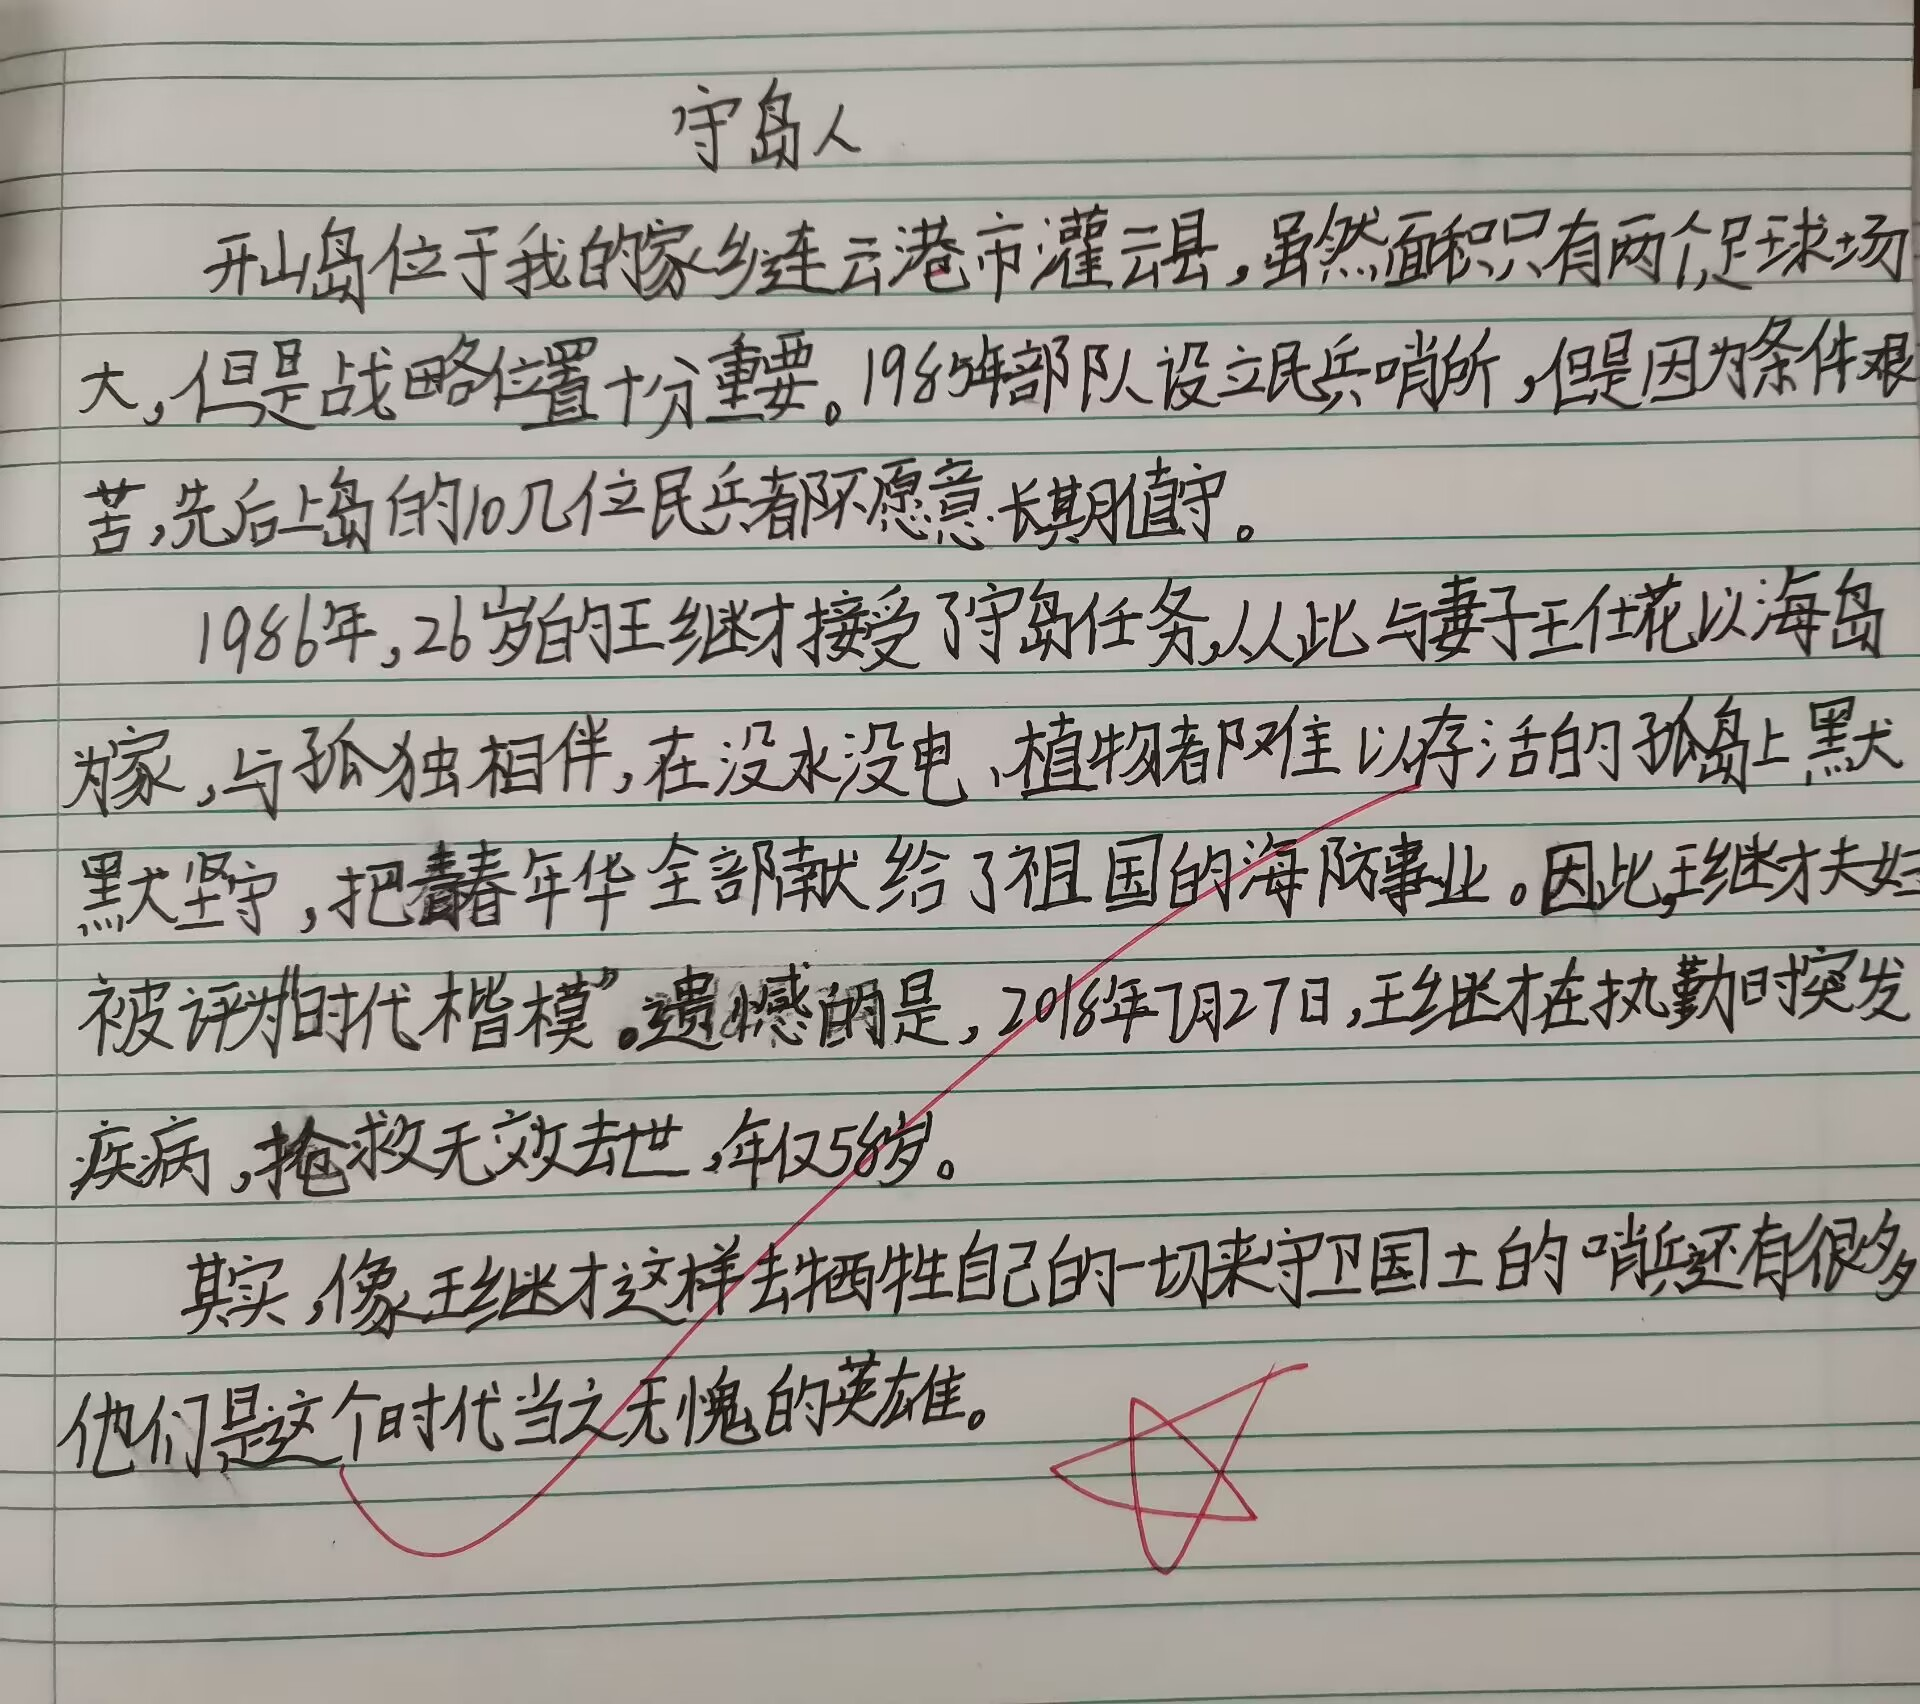 守岛人
开山岛位于我的家乡连云港市灌云县,虽然面积只有两个足球场
大,但是战略位置十分重要。1985年部队设立民兵哨所,但是因为条件艰
苦,先后上岛的10几位民兵都不愿意长期值守。
1986年,26岁的王继才接受了守岛任务,从此与妻子王仕花以海岛
为家,与孤独相伴,在没水没电、植物都难以存活的孤岛上默
默坚守,把青春年华全部献给了祖国的海防事业。因此,王继才夫妇
被评为“时代楷模”。遗憾的是,2018年7月27日,王继才在执勤时突发
疾病,抢救无效去世,年仅58岁。
其实,像王继才这样去牺牲自己的一切来守卫国土的哨兵还有很多
他们是这个时代当之无愧的英雄。